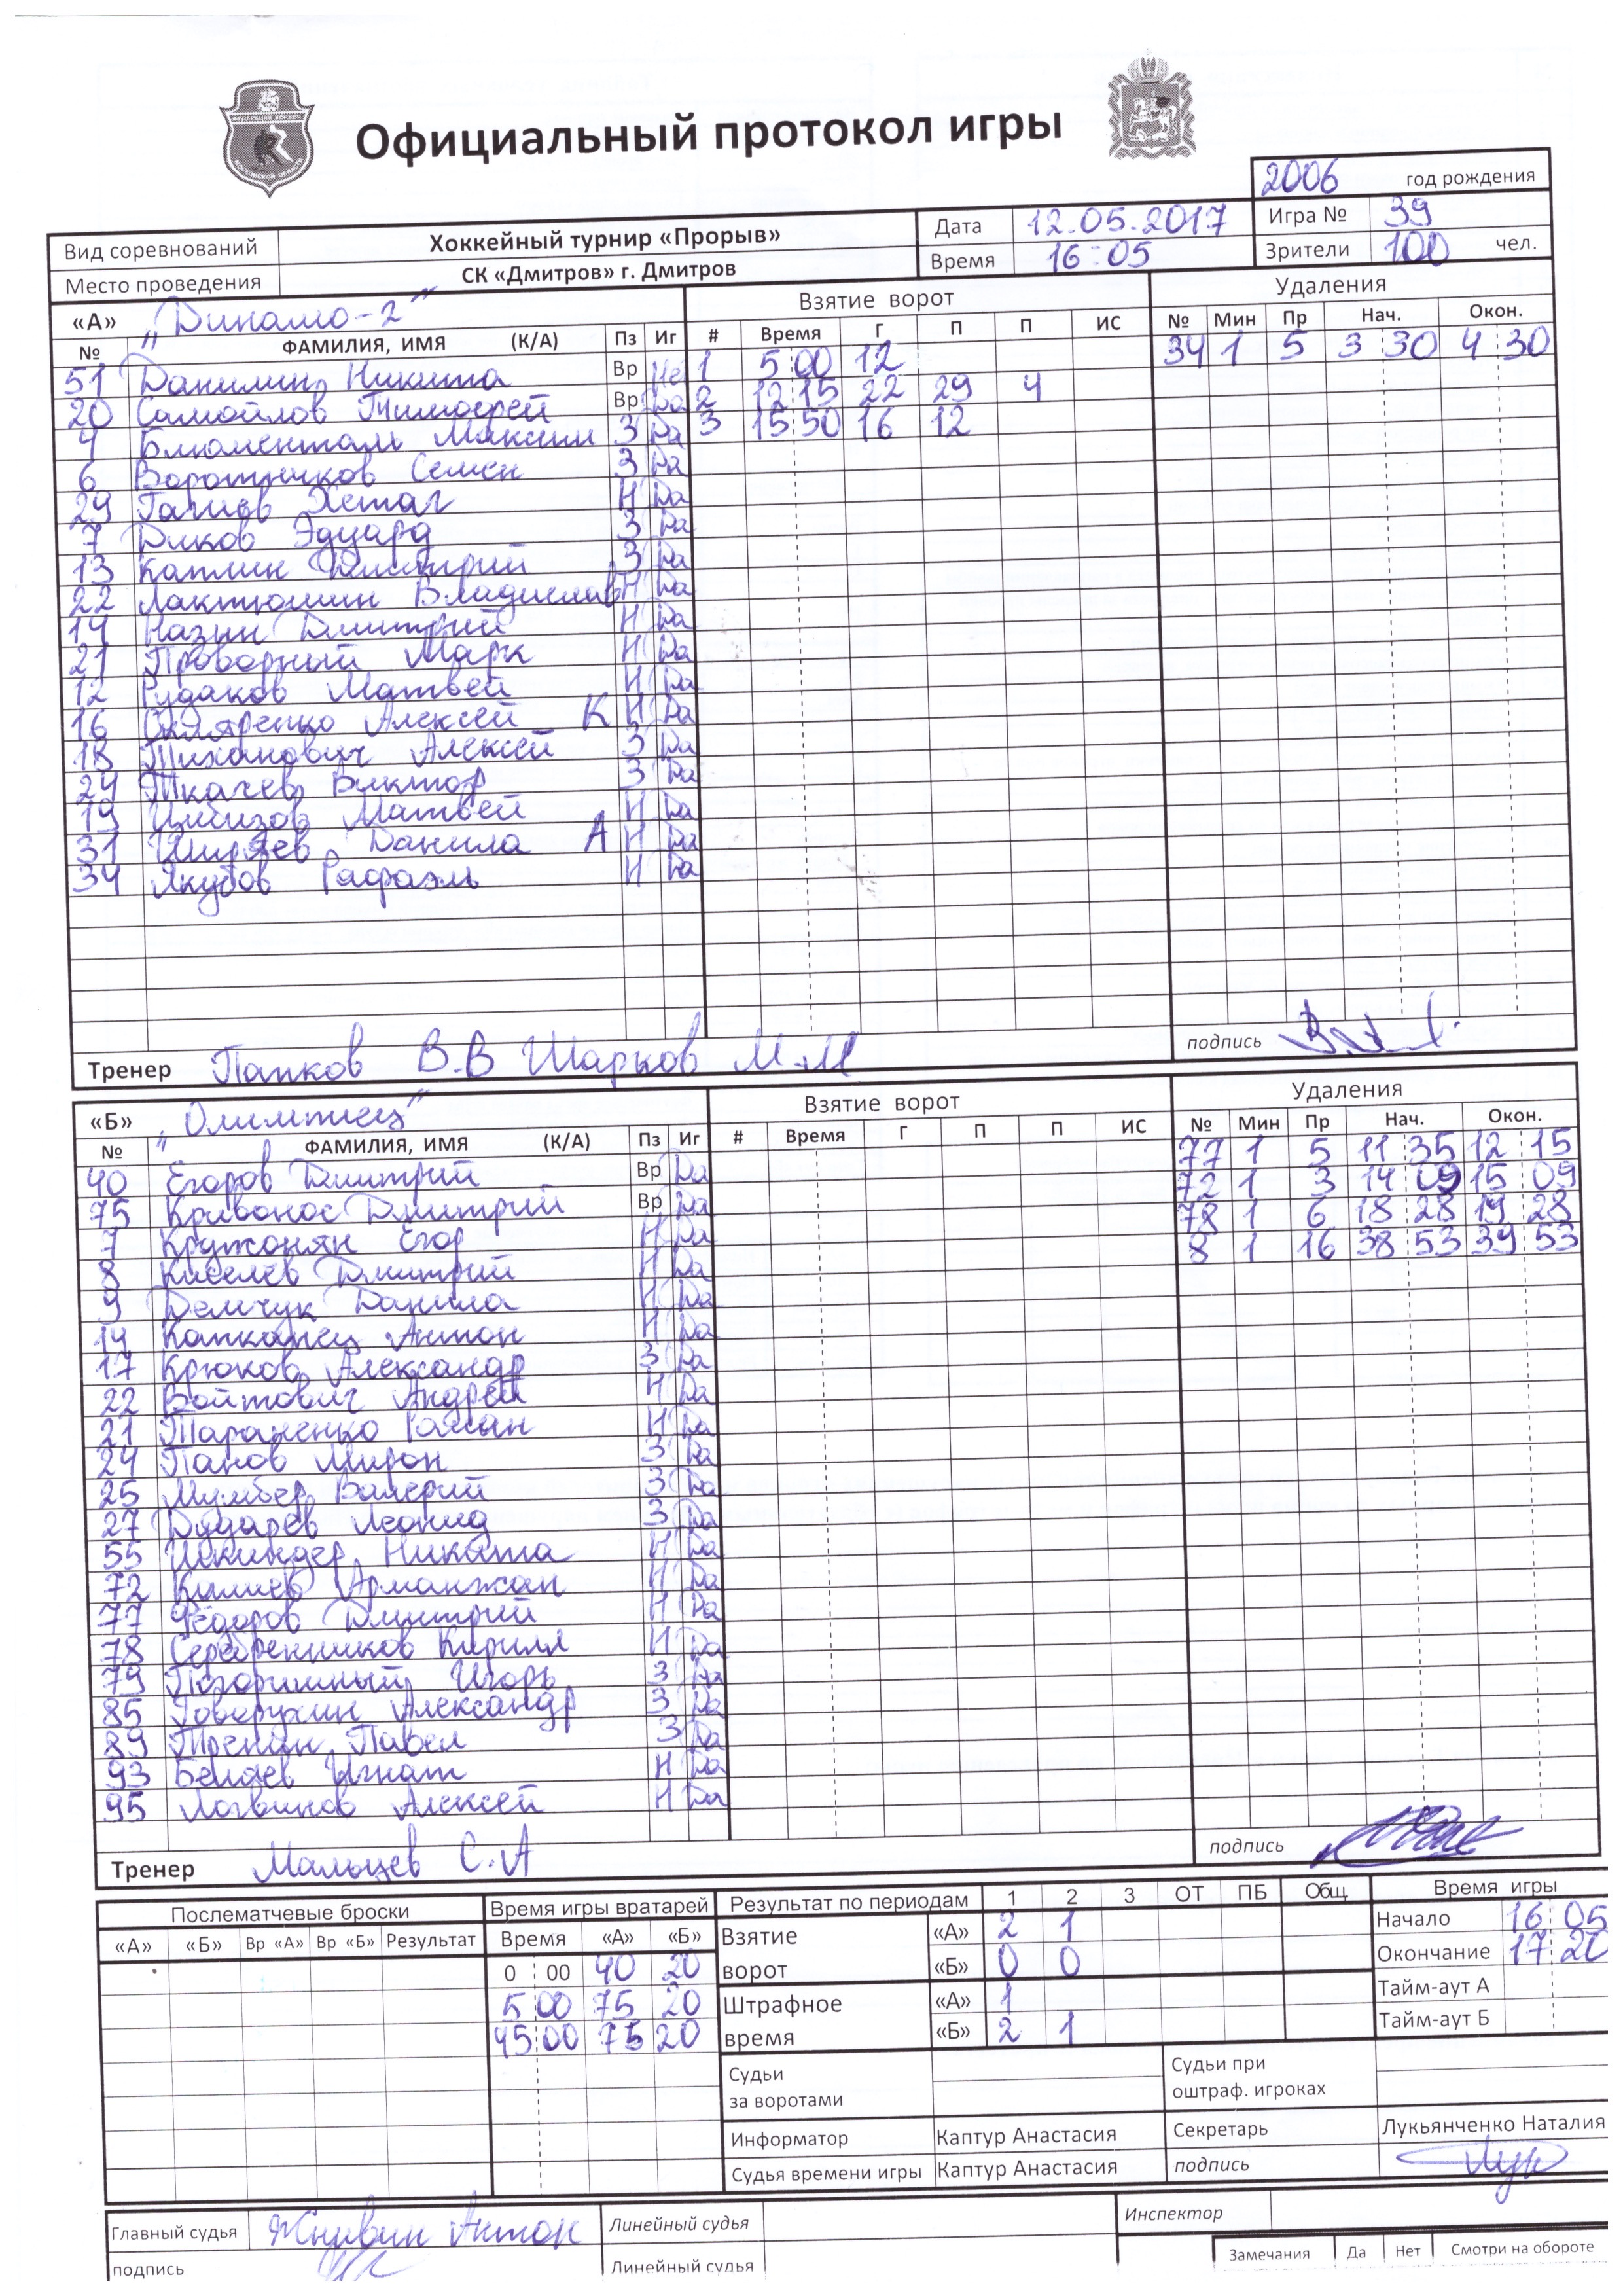 Официальный протокол игры
2006 год рождения
Вид соревнований Хоккейный турнир «Прорыв» Дата 12.05.2017 Игра № 39
Место проведения СК «Дмитров» г. Дмитров Время 16:05 Зрители 100 чел.
«А» „Динамо-2“ Взятие ворот Удаления
№ ФАМИЛИЯ, ИМЯ (К/А) Пз Иг # Время Г П П ИС № Мин Пр Нач. Окон.
51 Данилин Никита Вр Не 1 5 00 12 34 1 5 3 30 4 30
20 Самойлов Тимофей Вр Да 2 12 15 22 29 4
4 Блюменталь Максим З Да 3 15 50 16 12
6 Воротников Семен З Да
29 Гагиев Хетаг Н Да
7 Диков Эдуард З Да
13 Каплин Дмитрий З Да
22 Лактюшин Владислав Н Да
14 Назин Дмитрий Н Да
21 Проворный Марк Н Да
12 Рудаков Матвей Н Да
16 Скляренко Алексей К Н Да
18 Тиханович Алексей З Да
24 Ткачев Виктор З Да
19 Матвей Н Да
31 Ширяев Данила А Н Да
34 Якубов Рафаэль Н Да
Тренер Папков В.В Шарков М.М подпись
«Б» „Олимпиец“ Взятие ворот Удаления
№ ФАМИЛИЯ, ИМЯ (К/А) Пз Иг # Время Г П П ИС № Мин Пр Нач. Окон.
40 Егоров Дмитрий Вр Да 77 1 5 11 35 12 15
75 Кривонос Дмитрий Вр Да 72 1 3 14 09 15 09
7 Кружонян Егор Н Да 78 1 6 18 28 19 28
8 Киселев Дмитрий Н Да 8 1 16 38 53 39 53
9 Демчук Данила Н Да
14 Капканец Антон Н Да
17 Крюков Александр З Да
22 Войтович Андрей Н Да
21 Тараненко Роман Н Да
24 Панов Мирон З Да
25 Мумбер Валерий З Да
27 Дударев Леонид З Да
55 Шкиндер Никита Н Да
72 Килиев Арманжан Н Да
77 Фёдоров Дмитрий Н Да
78 Серебренников Кирилл Н Да
79 Игорь З Да
85 Говорухин Александр З Да
89 Трепан Павел З Да
93 Беляев Игнат Н Да
95 Логвинов Алексей Н Да
Тренер Мальцев С.А подпись
Послематчевые броски Время игры вратарей Результат по периодам 1 2 3 ОТ ПБ Общ Время игры
«А» «Б» Вр «А» Вр «Б» Результат Время «А» «Б» Взятие ворот «А» 2 1 Начало 16 05
0 00 40 20 «Б» 0 0 Окончание 17 20
5 00 75 20 Штрафное время «А» 1 Тайм-аут А
45 00 75 20 «Б» 2 1 Тайм-аут Б
Судьи за воротами Судьи при оштраф. игроках
Информатор Каптур Анастасия Секретарь Лукьянченко Наталия
Судья времени игры Каптур Анастасия подпись
Главный судья Жнивин Антон Линейный судья Инспектор
подпись Линейный судья Замечания Да Нет Смотри на обороте